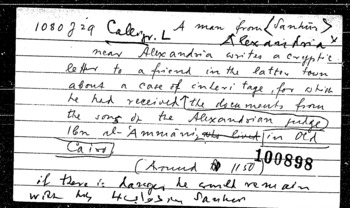 1080 J 29 Calligr. L A man from ⟨Sanhūr⟩
Alexandria
near Alexandria writes a cryptic
letter to a friend in the latter town
about a case of inheritage, for which
he had received the documents from
the song of the Alexandrian judge
Ibn al-Ammānī, who lived in Old
Cairo
(Around 1150) 100898
if there is danger he would remain
with his Sanhur